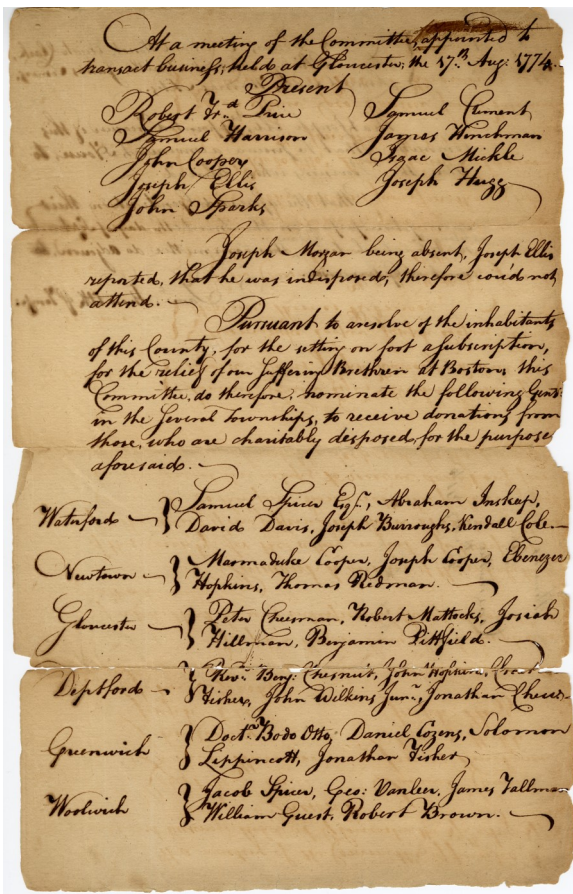 At a meeting of the Committee, appointed to
transact business, held at Gloucester, the 17th. Aug: 1774.
Present
Robert Frd. Price Samuel Clement
Samuel Harrison James Hinchman
John Cooper Isaac Mickle
Joseph Ellis Joseph Hugg
John Sparks
Joseph Morgan being absent, Joseph Ellis
reported, that he was indisposed, therefore cou'd not
attend.
Pursuant to a resolve of the inhabitants
of this County, for the setting on foot a subscription,
for the relief of our suffering Brethren at Boston, this
Committee, do therefore, nominate the following Gent:
in the several Townships, to receive donations from
those, who are charitably disposed, for the purpose
aforesaid.
Waterford } Samuel Spicer Esqr., Abraham Inskeep,
David Davis, Joseph Burroughs, Kendall Cole.
Newtown } Marmaduke Cooper, Joseph Cooper, Ebenezer
Hopkins, Thomas Redman.
Gloucester } Peter Cheesman, Robert Mattocks, Josiah
Hillman, Benjamin Pittfield.
Deptford } Revd. Benj: Chesnut, John Hopkins,
Fisher, John Wilkins Junr., Jonathan
Greenwich } Doctr. Bodo Otto, Daniel Cozens, Solomon
Lippincott, Jonathan Fisher
Woolwich } Jacob Spicer, Geo: Vanleer, James Tallman
William Guest, Robert Brown.